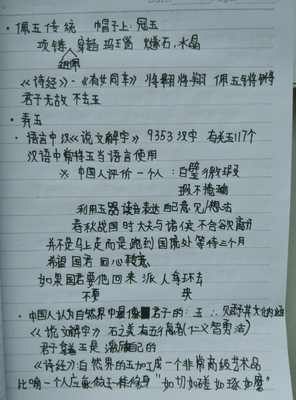 ·佩玉传统 帽子上:冠玉
项链,穿越 玛玉 燧石,水晶
祖佩
《诗经》-《有女同车》将翱将翔 佩玉锵锵
君子无故 不去玉
·弄玉
·语言中汉《说文解字》9353汉字 有关玉117个
汉语中常将玉当语言使用
※ 中国人评价一个人:白璧微瑕
瑕不掩瑜
利用玉器读音表达自己意见/想法
春秋战国时大夫与诸侯不合欲离开
并不是马上走而是跑到国境处等待三个月
希望国君 回心转意
如果国君要他回来 派人拿环去
不要 玦
·中国人认为自然界中最像君子的:玉 ∴赋予其文化内涵
《说文解字》石之美有五德者(仁义智勇洁)
君子拿玉是激励自己的
《诗经》自然界的玉加工成一个非常高级艺术品
比喻一个人应能做玉一样修身"如切如磋如琢如磨"